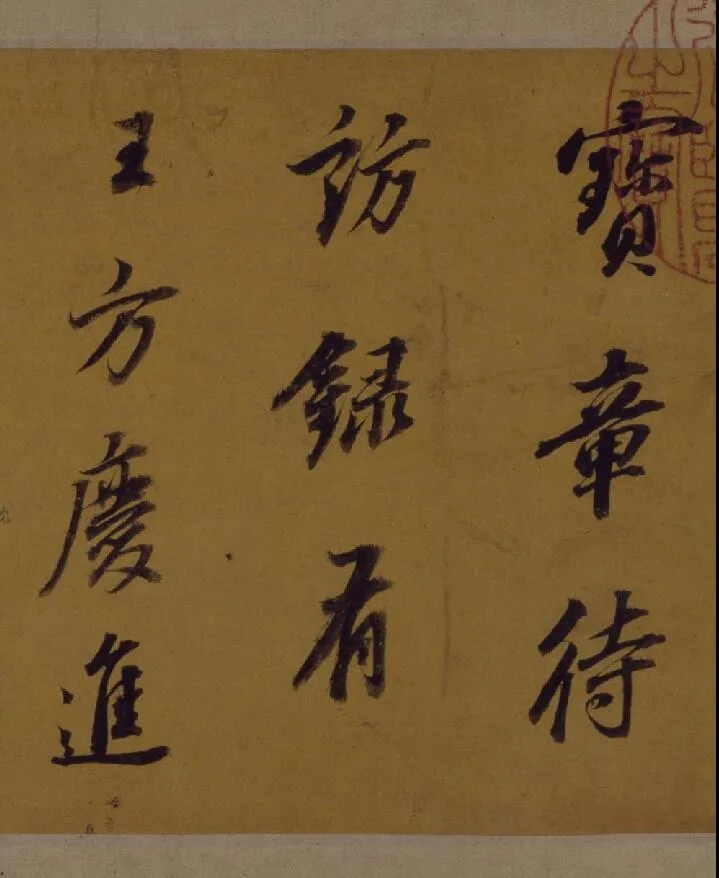 寶章待
訪錄有
王方慶進